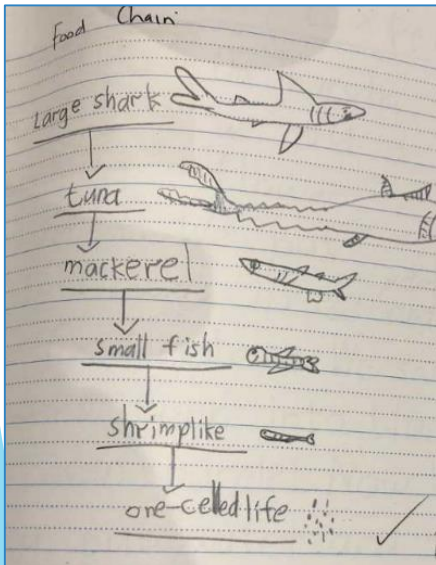 Food Chain
Large shark
tuna
mackerel
small fish
shrimplike
one-celled life